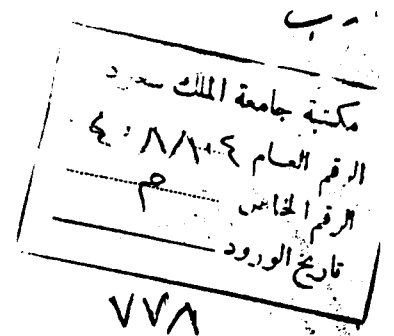 مكتبة جامعة الملك سعود
الرقم العام
الرقم الخاص م
تاريخ الورود
٧٧٨